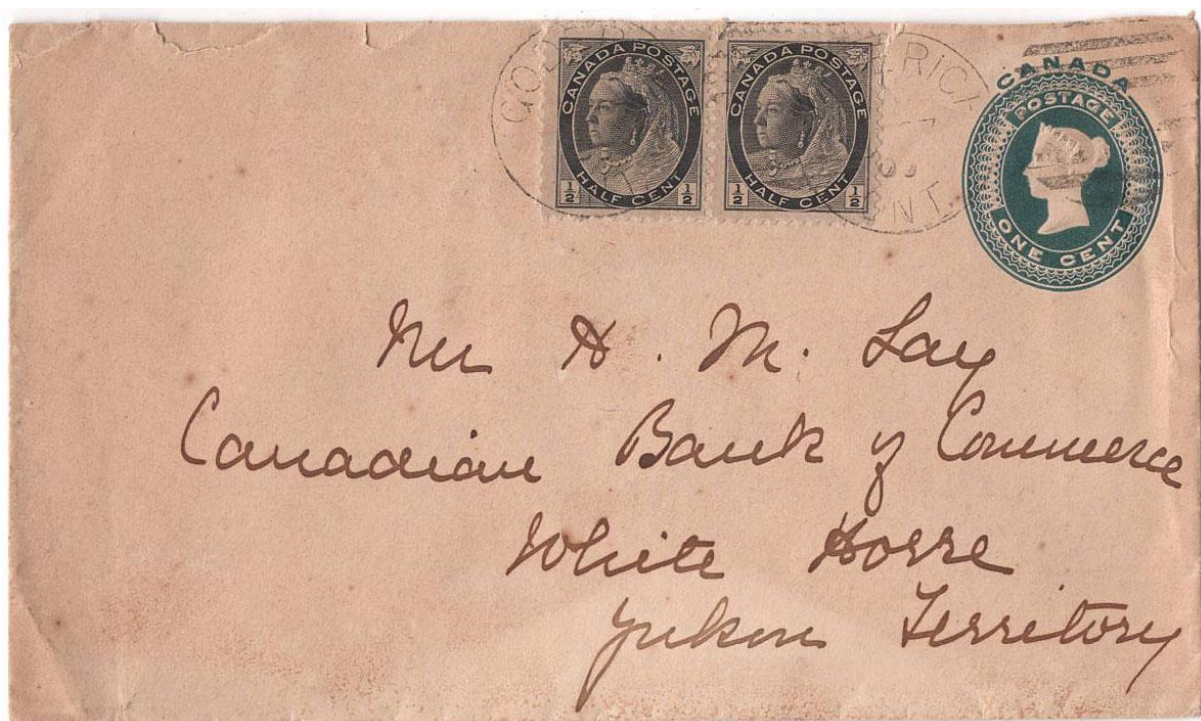 CANADA POSTAGE
HALF CENT
½ ½
CANADA POSTAGE
HALF CENT
½ ½
CANADA
POSTAGE
ONE CENT
ONT.
Mr H. M. Lay
Canadian Bank of Commerce
White Horse
Yukon Territory